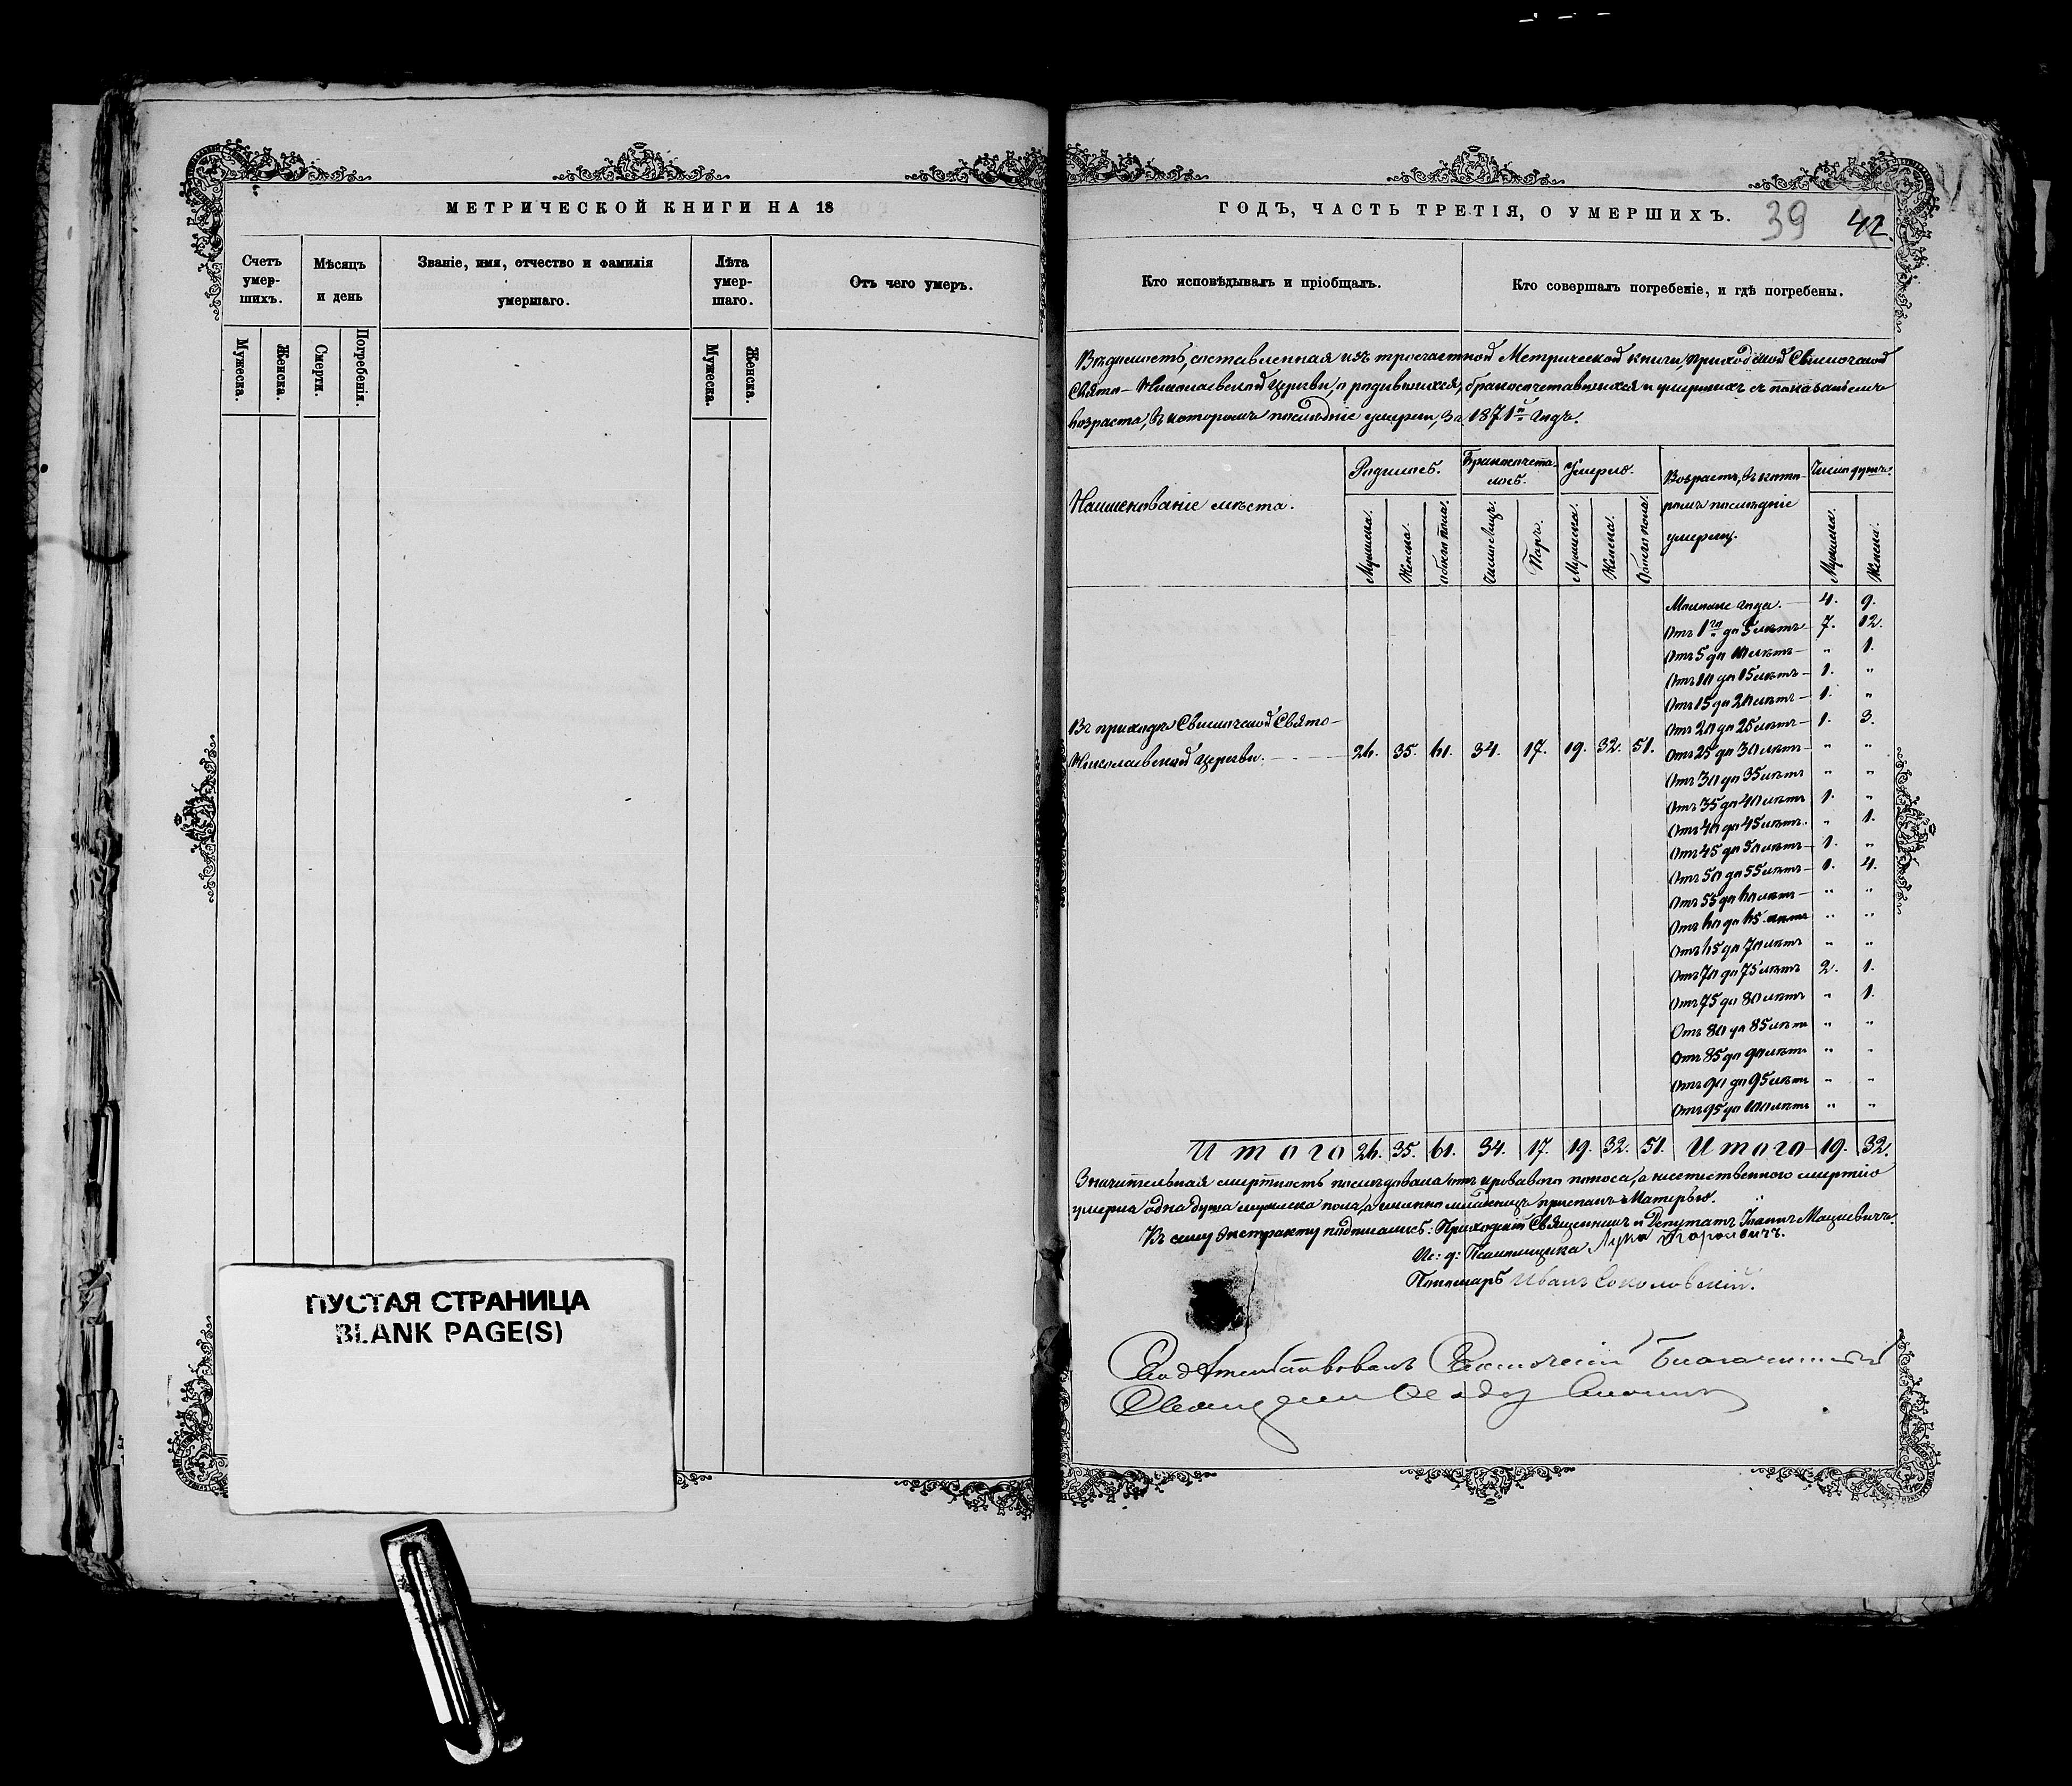 МЕТРИЧЕСКОЙ КНИГИ НА 18
Счетъ умер-шихъ.
Мужеска.
Женска.
Мѣсяцъ и день
Смерти.
Погребенія.
Званіе, имя, отчество и фамилія
умершаго.
Лѣта умер-шаго.
Мужеска.
Женска.
Отъ чего умеръ.
ПУСТАЯ СТРАНИЦА
BLANK PAGE(S)
ГОДЪ, ЧАСТЬ ТРЕТІЯ, О УМЕРШИХЪ.
39 42.
Кто исповѣдывалъ и пріобщалъ.
Кто совершалъ погребеніе, и гдѣ погребены.
Вѣдомость, составленная изъ троечастной Метрической книги, приходской Свислочской
Свято-Николаевской Церкви, о родившихся, бракосочетавшихся и умершихъ съ показаніемъ
возраста, въ которомъ послѣдніе умерли, за 1871й Годъ.
Наименованіе мѣста.
Родилось.
Мужеска.
Женска.
обоего пола.
Бракосочета-
лось.
Число лицъ.
Паръ.
Умерло.
Мужеска.
Женска.
Обоего пола.
Возрастъ, въ кото-
ромъ послѣдніе
умерли.
Число душъ.
Мужеска.
Женска.
Моложе года. 4. 9.
Отъ 1го до 5 лѣтъ 7. 12.
Отъ 5 до 10 лѣтъ „ 1.
Отъ 10 до 15 лѣтъ 1. „
Отъ 15 до 20 лѣтъ 1. „
Отъ 20 до 25 лѣтъ 1. 3.
Въ приходѣ Свислочской Свято-
Николаевской Церкви. 26. 35. 61. 34. 17. 19. 32. 51.
Отъ 25 до 30 лѣтъ „ „
Отъ 30 до 35 лѣтъ „ „
Отъ 35 до 40 лѣтъ 1. „
Отъ 40 до 45 лѣтъ „ 1.
Отъ 45 до 50 лѣтъ 1. „
Отъ 50 до 55 лѣтъ 1. 4.
Отъ 55 до 60 лѣтъ „ „
Отъ 60 до 65 лѣтъ „ „
Отъ 65 до 70 лѣтъ „ „
Отъ 70 до 75 лѣтъ 2. 1.
Отъ 75 до 80 лѣтъ „ 1.
Отъ 80 до 85 лѣтъ „ „
Отъ 85 до 90 лѣтъ „ „
Отъ 90 до 95 лѣтъ „ „
Отъ 95 до 100 лѣтъ „ „
Итого 26. 35. 61. 34. 17. 19. 32. 51. Итого 19. 32.
Значительная смертность послѣдовала отъ кроваваго поноса, а неестественного смертію
умерла одна душа мужеска пола, а именно младенецъ приспанъ Матерью.
Къ сему Экстракту подписались: Приходскій Священникъ и Депутатъ Іоаннъ Мацкевичъ.
Ис: д: Псаломщика Лука
Пономарь Иванъ Соколовскій.
Благочинный